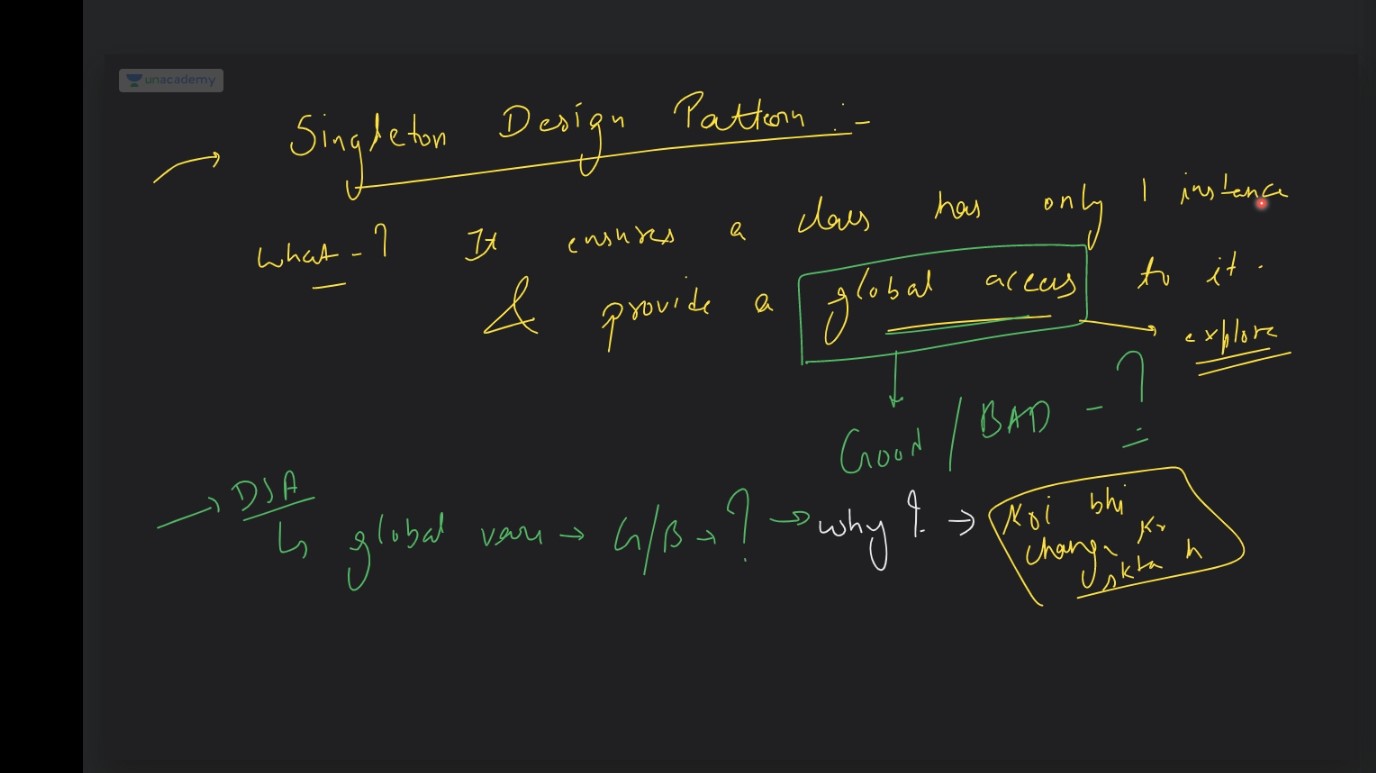 unacademy
Singleton Design Pattern :-
What - ? It ensures a class has only 1 instance
& provide a global access to it.
explore
Good / BAD - ?
DSA
global vars → G/B → ? → why ? → Koi bhi
change kr
skta h